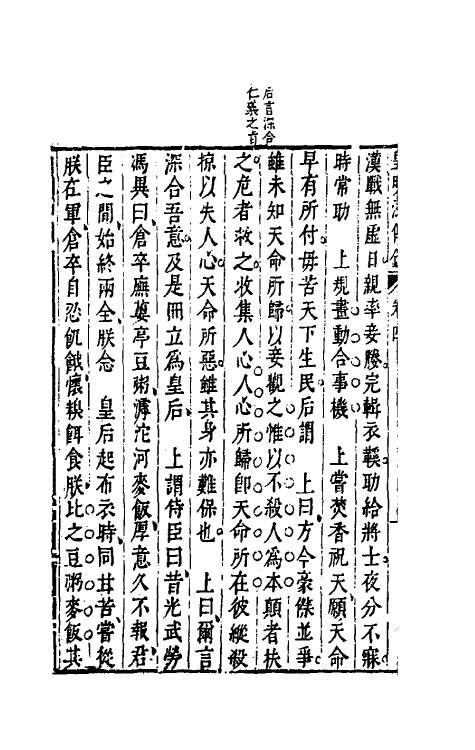 后言深合
仁義之旨
漢戰無虛日親率妾媵完輯衣鞵助給將士夜分不寐
時常助　上規畫動合事機　上嘗焚香祝天願天命
早有所付毋苦天下生民后謂　上曰方今豪傑並爭
雖未知天命所歸以妾觀之惟以不殺人為本顛者扶
之危者救之收集人心人心所歸卽天命所在彼縱殺
掠以失人心天命所惡雖其身亦難保也　上曰爾言
深合吾意及是冊立為皇后　上謂侍臣曰昔光武勞
馮異曰倉卒蕪蔞亭豆粥滹沱河麥飯厚意久不報君
臣之間始終兩全朕念　皇后起布衣時同甘苦嘗從
朕在軍倉卒自忍飢餓懷糗餌食朕比之豆粥麥飯其